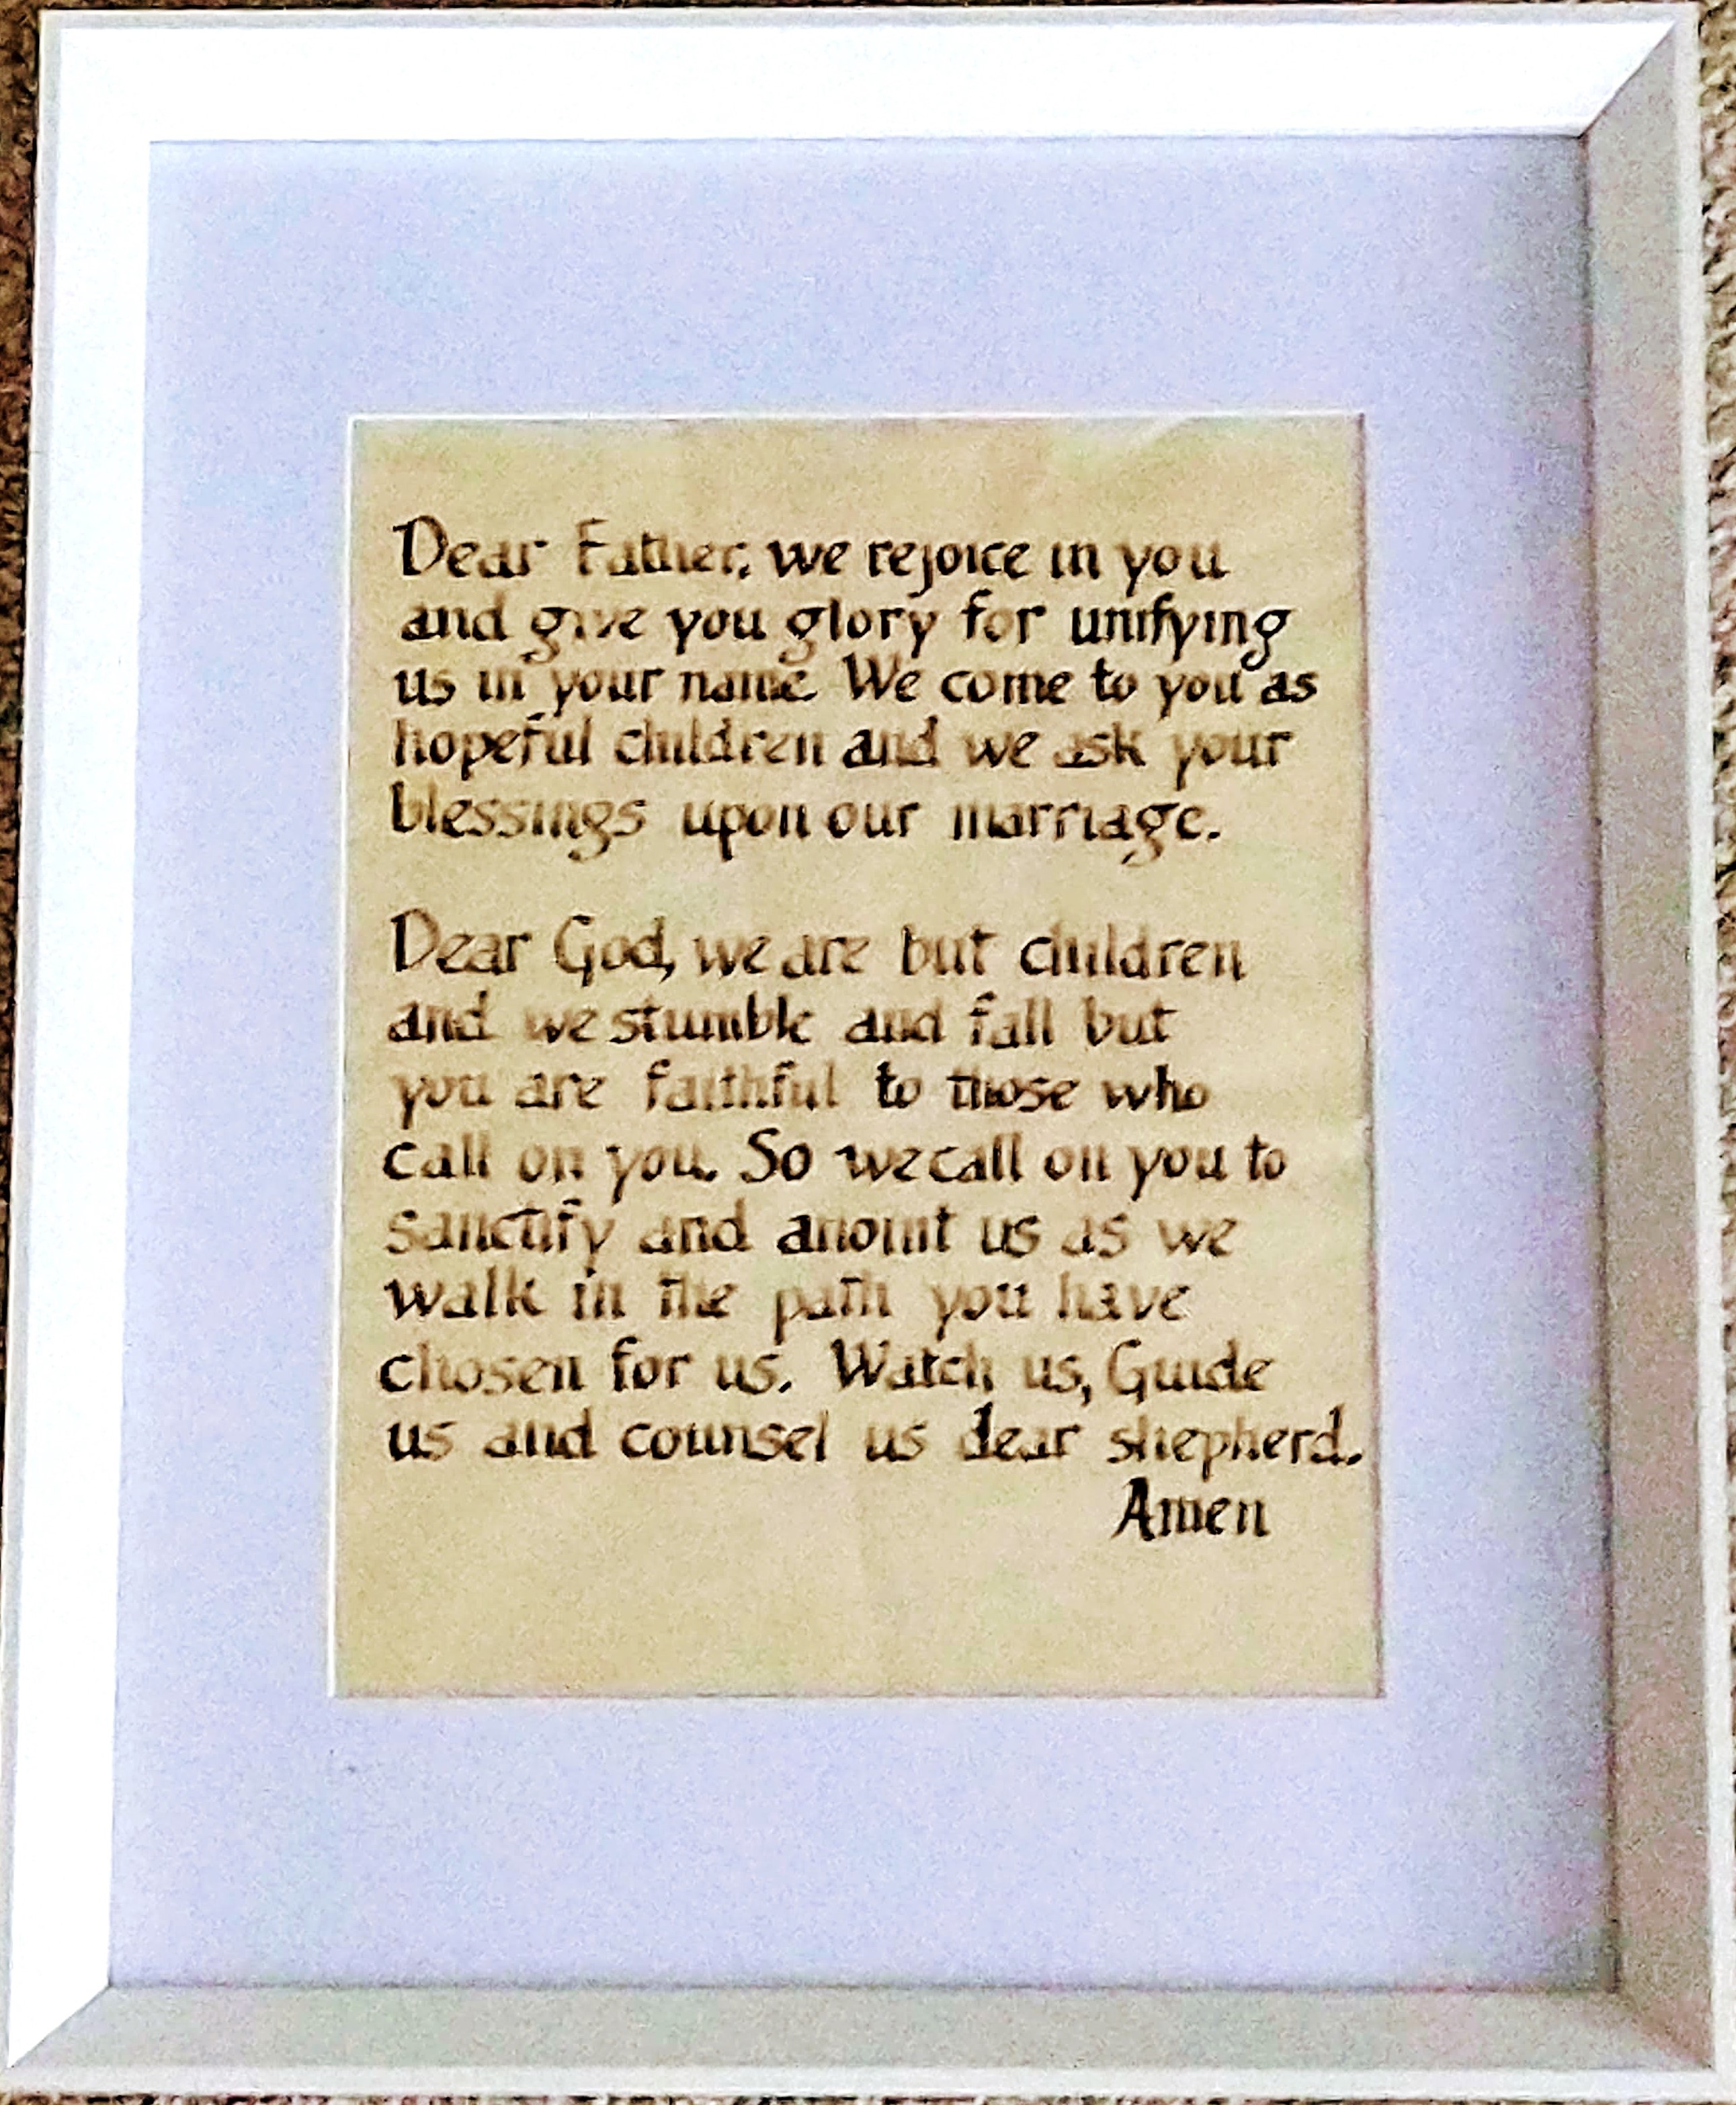 Dear Father, we rejoice in you
and give you glory for unifying
us in your name. We come to you as
hopeful children and we ask your
blessings upon our marriage.
Dear God, we are but children
and we stumble and fall but
you are faithful to those who
call on you. So we call on you to
sanctify and anoint us as we
walk in the path you have
chosen for us. Watch us, Guide
us and counsel us dear shepherd.
Amen